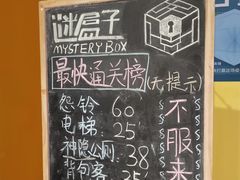 谜盒子
MYSTERY BOX
最快通关榜(无提示)
怨铃 60'
电梯 25'
神隐公厕 38'
背包客 25'
不服来